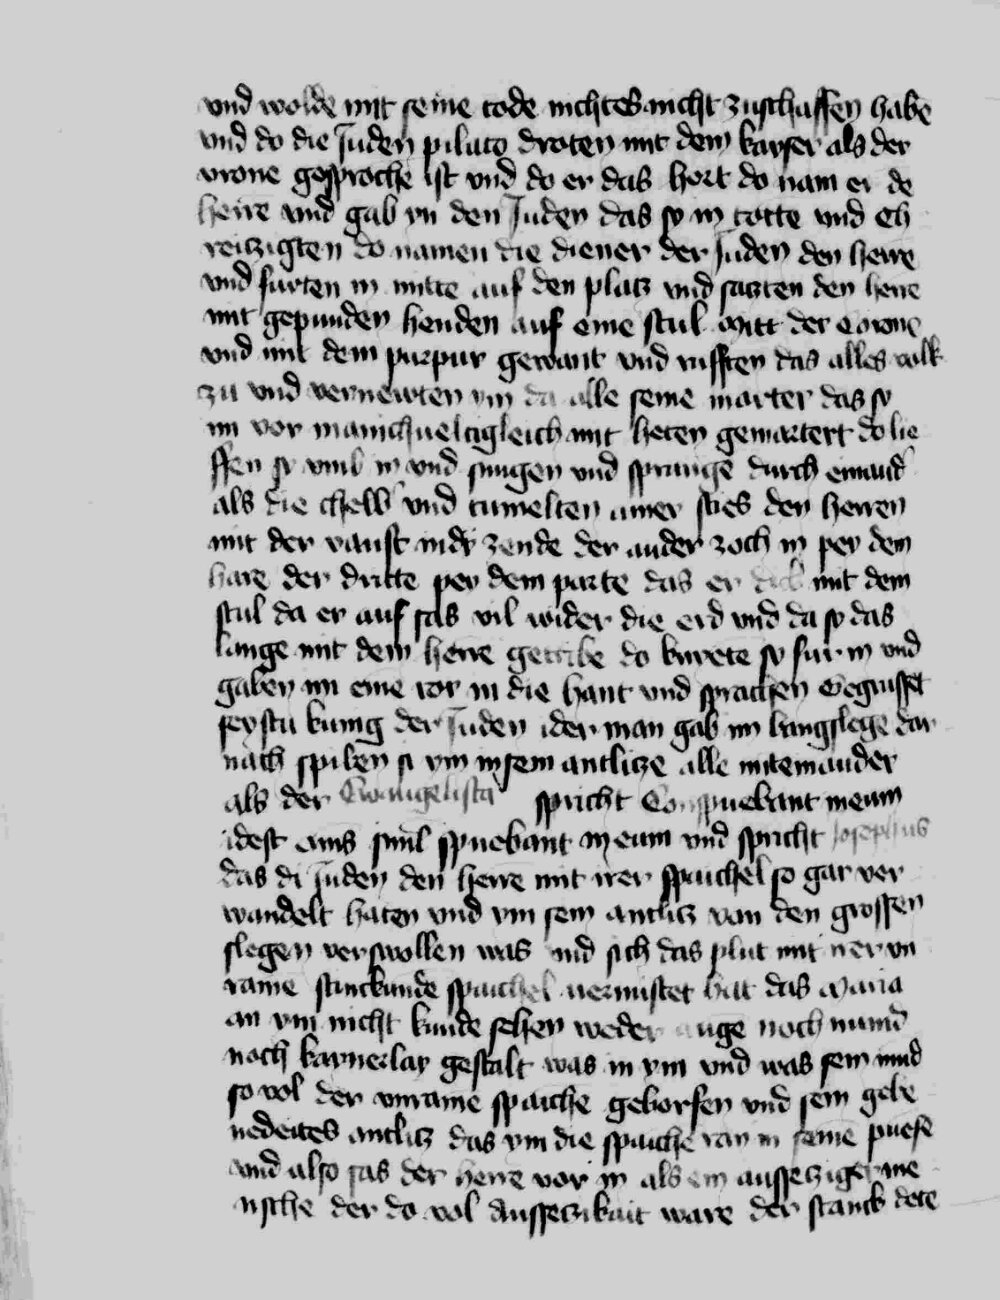 vnd wolde mit seine tode nichtes nicht zuschaffen habe
vnd do die Juden pilato droten mit dem kayser als der
vrone gesproche ist vnd do er das hort do nam er de
herre vnd gab yn den Juden das sy in totte vnd ch
reitzigten do namen die diener der Juden den herre
vnd furten in mitte auf den platz vnd satzten den herre
mit gepunden henden auf eine stul mitt der Corone
vnd mit dem purpur gewant vnd rufften das alles volk
zu vnd vernewten ym da alle seine marter das sy
im vor manichueltigleich mit heten gemartert do lie
ffen sy vmb in vnd sungen vnd sprunge durch einand
als die chelb vnd tumelten ainer sties den herren
mit der vaust in dy zende der ander zoch in pey dem
hare der dritte pey dem parte das er dick mit dem
stul da er auf sas vil wider die erd vnd da sy das
lange mit dem herre getribe do knyete sy fur in vnd
gaben im eine ror in die hant vnd sprachen Gegrusset
seystu kunig der Juden ider man gab im hangslege dar
nach spiben si ym in sein antlitze alle miteinander
als der Ewangelista spricht Conspuebant in eum
idest eius simul spuebant in eum vnd spricht Josephus
das di Juden den herre mit irer spaichel so gar ver
wandelt haten vnd ym sein antlitz van den grossen
slegen verswollen was vnd sich das plut mit irer vn
raine stinckunde spaichel vermistet hat das Maria
an ym nicht kunde sehen weder auge noch mund
noch kaynerlay gestalt was in ym vnd was sein mud
so vol der vnraine spaiche geworfen vnd sein gebe
nedeites antlitz das ym die spaiche ran in seine puese
vnd also sas der herre vor in als ein aussetziger me
nsche der do vol Aussetzikait ware der stanck dete